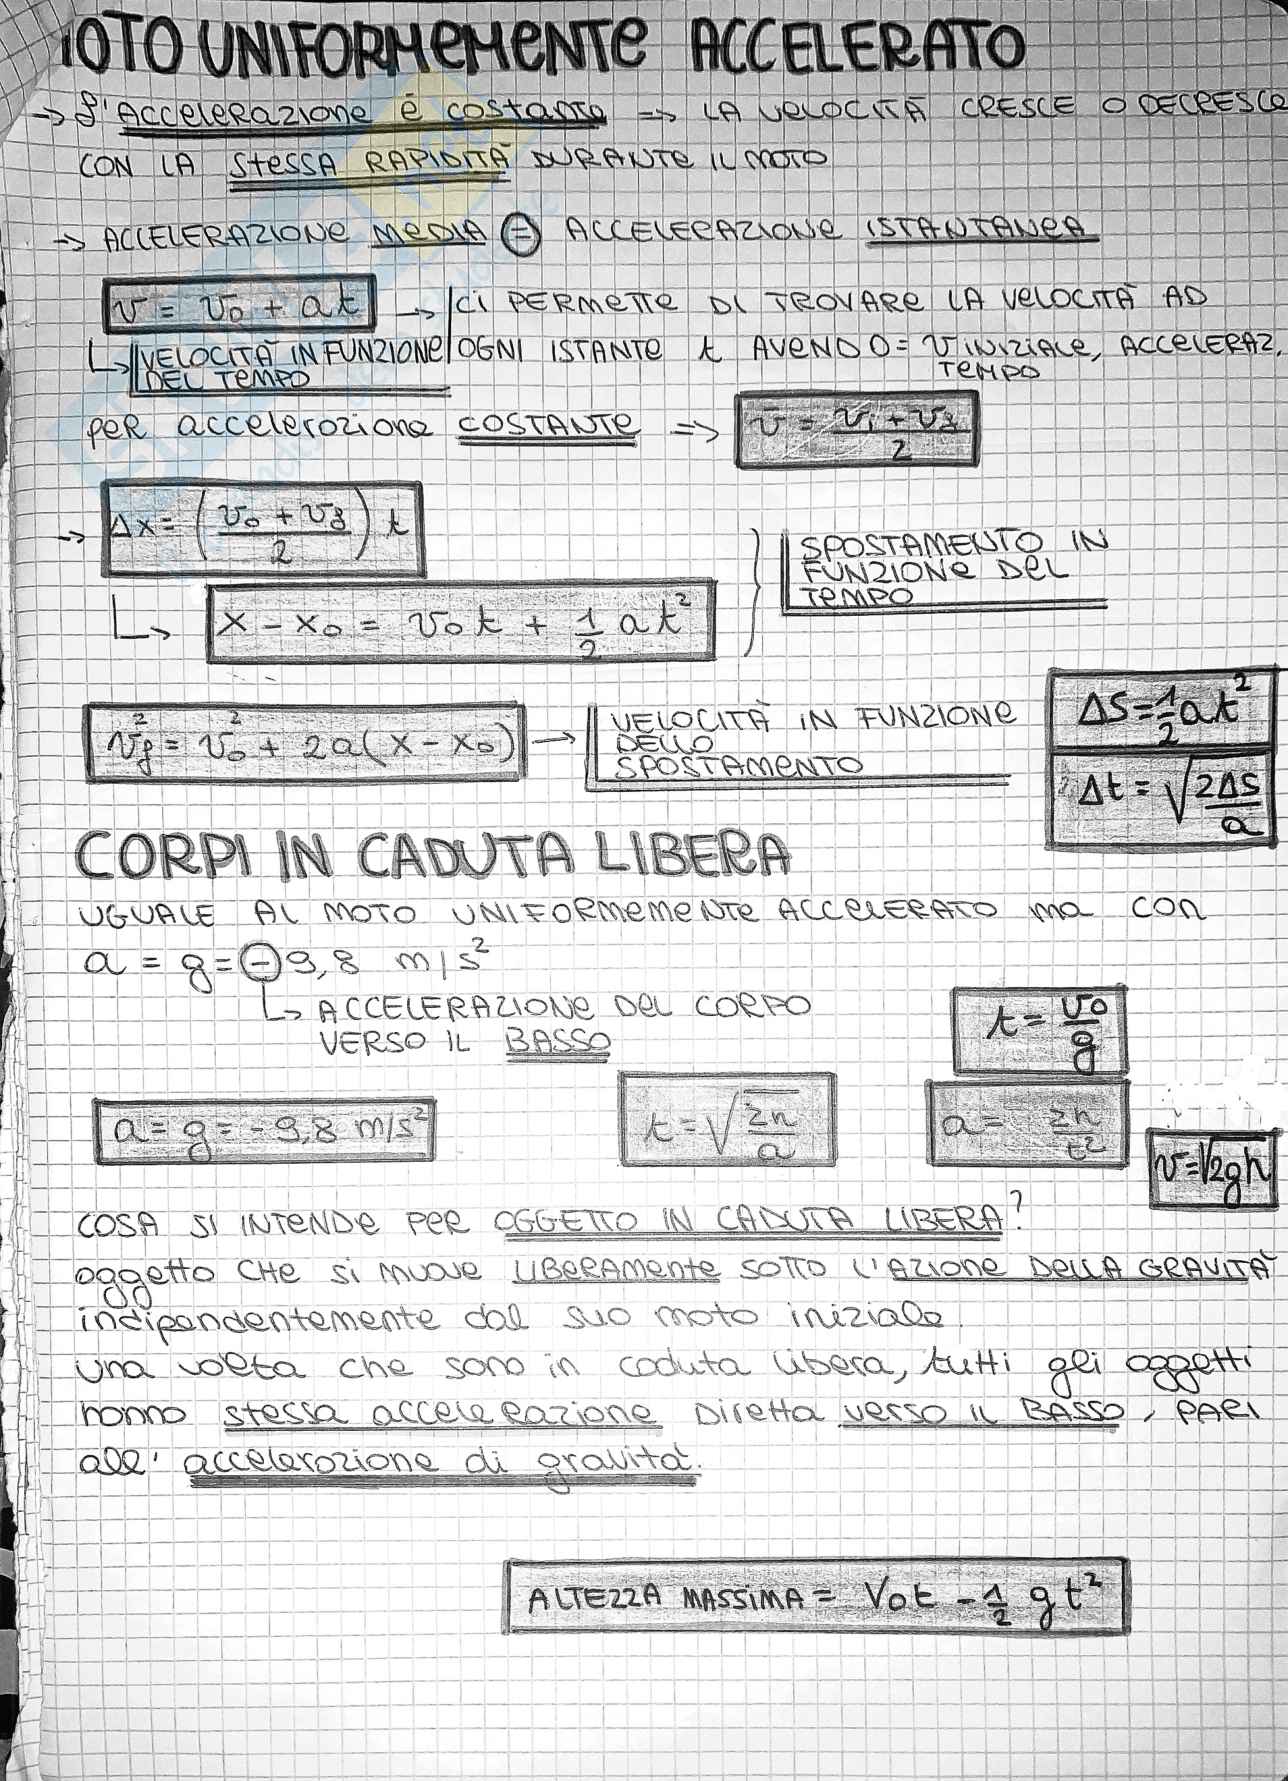 MOTO UNIFORMEMENTE ACCELERATO
→ l'Accelerazione è costante => LA VELOCITÀ CRESCE O DECRESCE
CON LA STESSA RAPIDITÀ DURANTE IL MOTO
→ ACCELERAZIONE MEDIA = ACCELERAZIONE ISTANTANEA
v = v₀ + at → CI PERMETTE DI TROVARE LA VELOCITÀ AD
↳ VELOCITÀ IN FUNZIONE DEL TEMPO
OGNI ISTANTE t AVENDO = v INIZIALE, ACCELERAZ. TEMPO
per accelerazione COSTANTE => v̄ = (vᵢ + v_f)/2
→ Δx = ((v₀ + v_f)/2) t
↳ x - x₀ = v₀t + 1/2 at²
SPOSTAMENTO IN
FUNZIONE DEL
TEMPO
v_f² = v₀² + 2a(x - x₀) → VELOCITÀ IN FUNZIONE
DELLO
SPOSTAMENTO
ΔS = 1/2 at²
Δt = √(2ΔS/a)
CORPI IN CADUTA LIBERA
UGUALE AL MOTO UNIFORMEMENTE ACCELERATO ma con
a = g = -9,8 m/s²
↳ ACCELERAZIONE DEL CORPO
VERSO IL BASSO
t = v₀/g
a = g = -9,8 m/s² t = √(2h/a) a = 2h/t²
v = √2gh
COSA SI INTENDE PER OGGETTO IN CADUTA LIBERA?
oggetto CHE si muove LIBERAMENTE SOTTO L'AZIONE DELLA GRAVITÀ
indipendentemente dal suo moto iniziale.
una volta che sono in caduta libera, tutti gli oggetti
hanno stessa accelerazione diretta verso il BASSO, PARI
all' accelerazione di gravità.
ALTEZZA MASSIMA = V₀t - 1/2 gt²